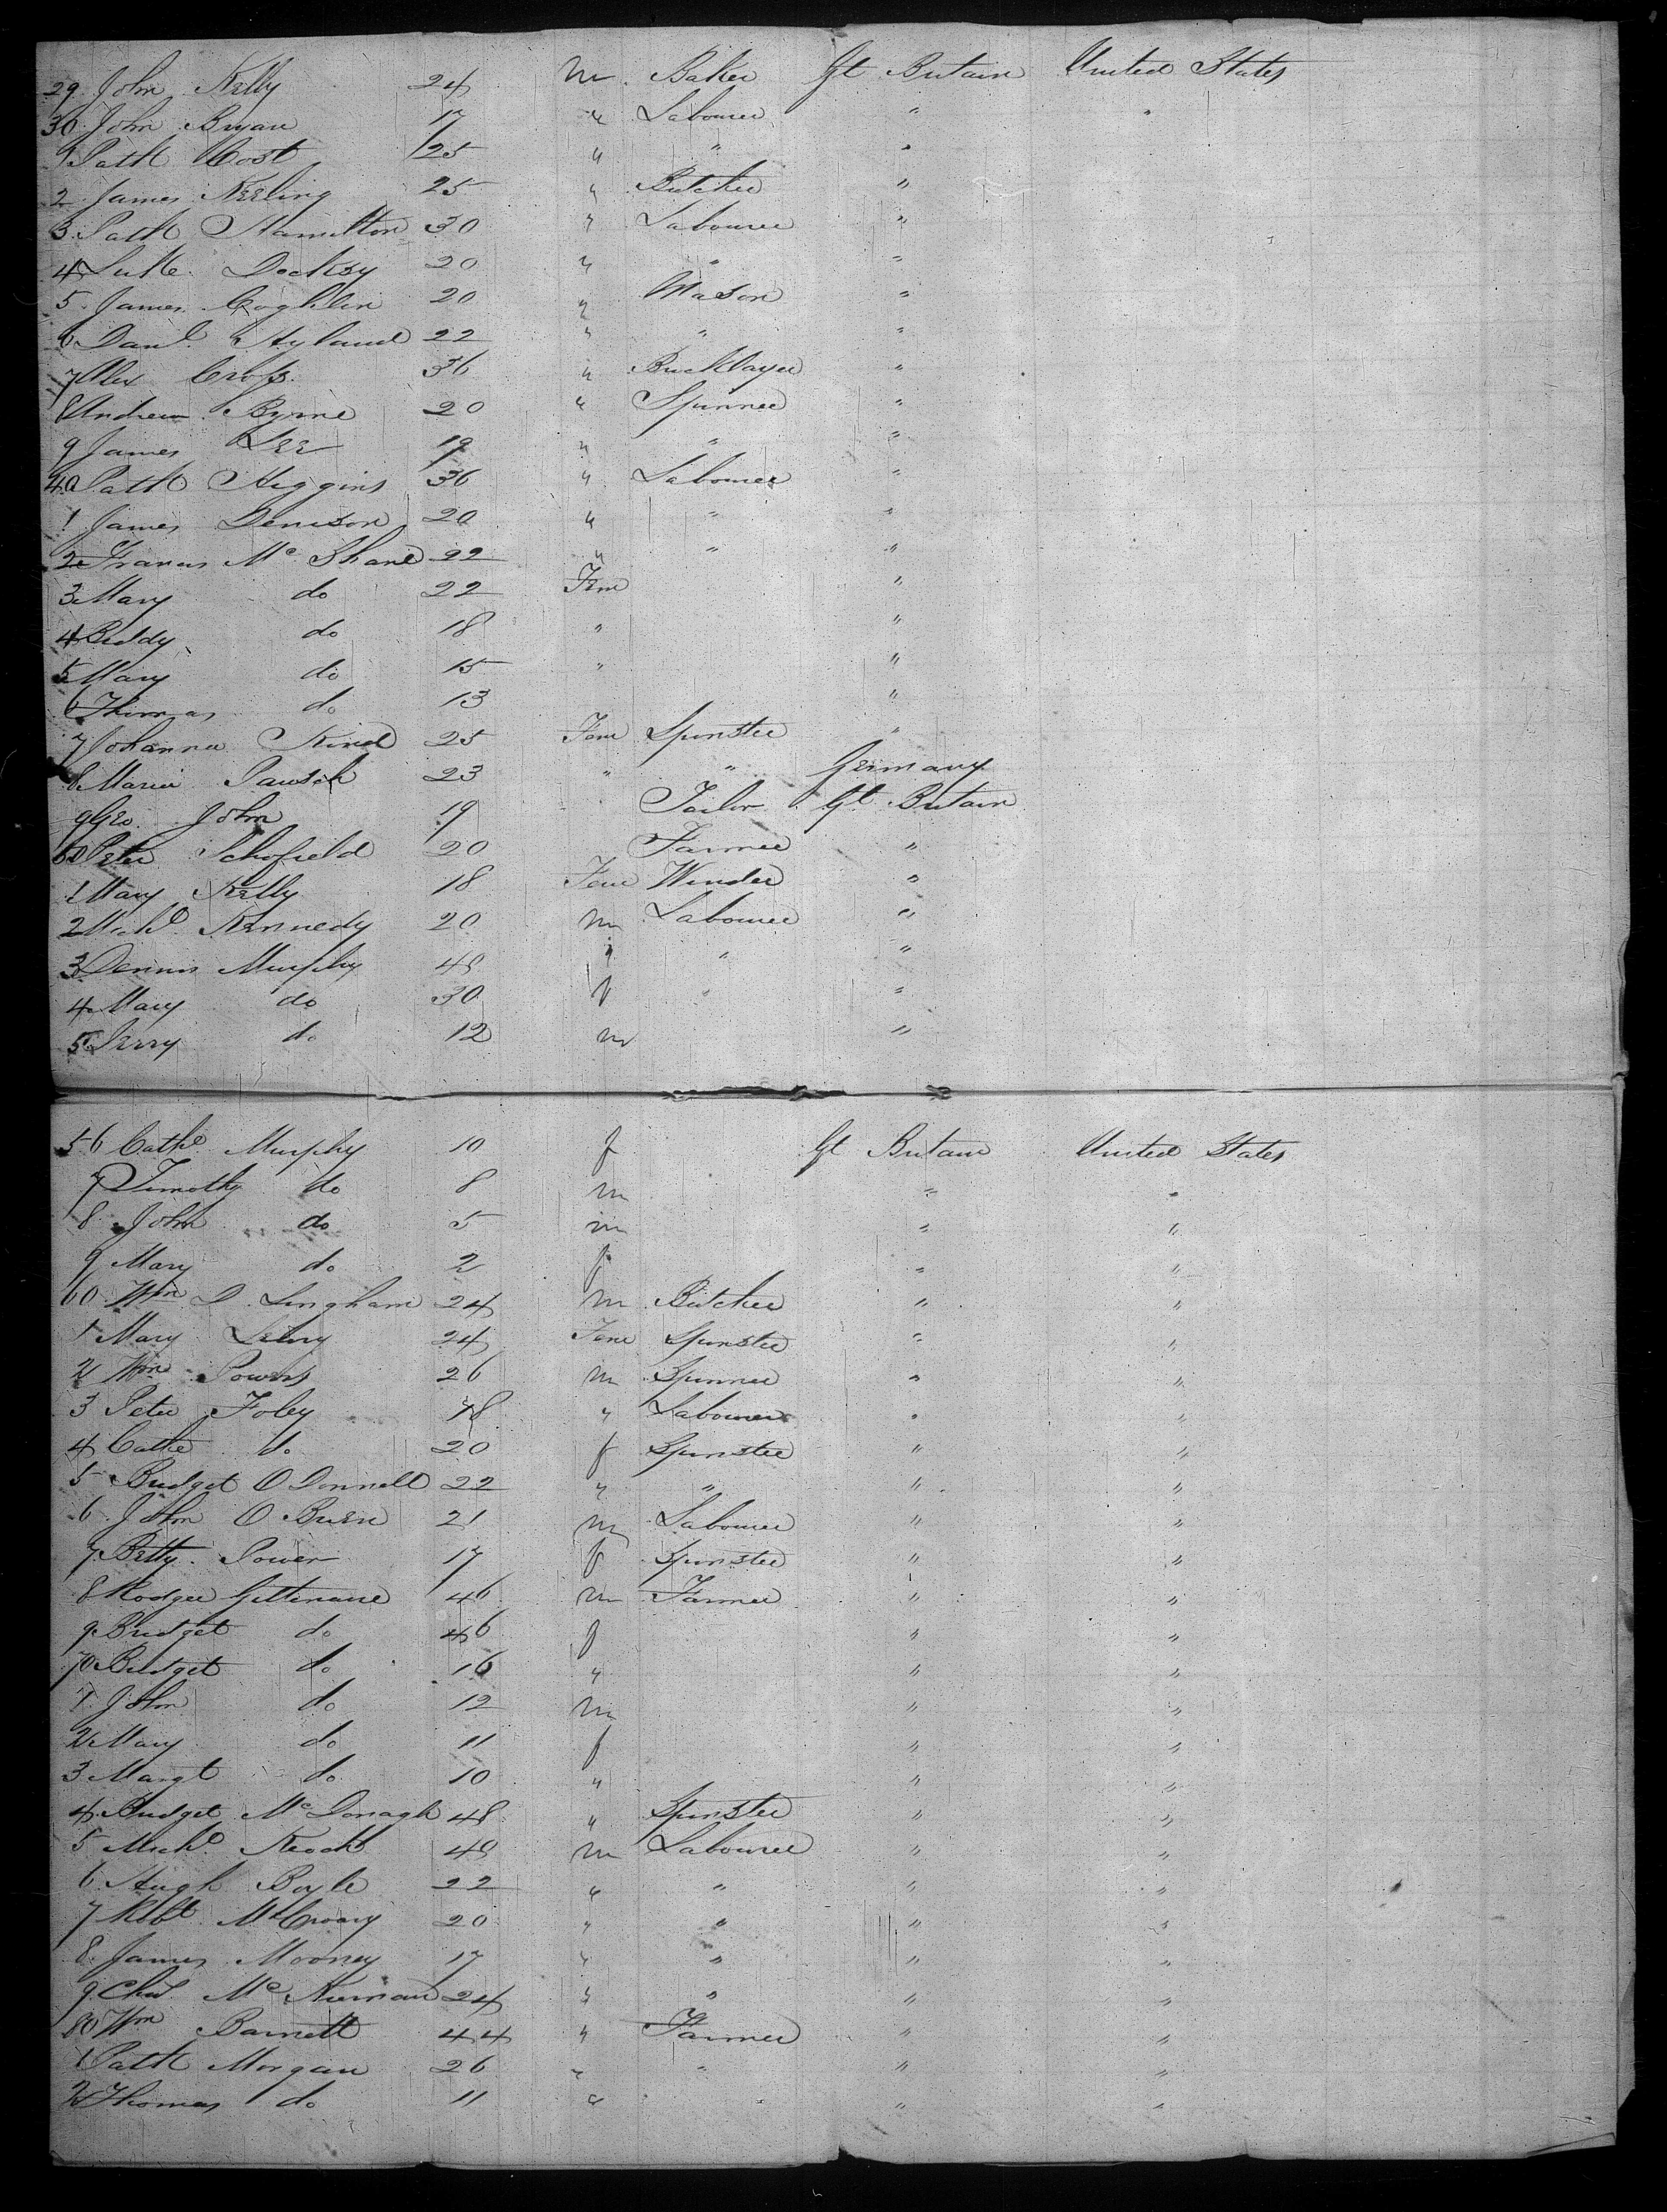 29 John Kelly 24 m Baker Gt Britain United States
30 John Bryan 17 " Labourer " "
1 Patk Cost 25 " " "
2 James Keeling 25 " Butcher "
3 Patk Hamilton 30 " Labourer "
4 Luke Dockey 20 " " "
5 James Coghlin 20 " Mason "
6 Danl Hyland 22 " " "
7 Alex Cross 36 " Bricklayer "
8 Andrew Byrne 20 " Spinner "
9 James Lee 19 " " "
40 Patk Higgins 36 " Labourer "
1 James Denison 20 " " "
2 Francis Mc Shane 22 " " "
3 Mary do 22 Fem "
4 Biddy do 18 " "
5 Mary do 15 " "
6 Thomas do 13 "
7 Johanna Kind 25 Fem Spinster "
8 Maria 23 " " Germany
9 Geo John 19 Tailor Gt Britain
50 Peter Schofield 20 Farmer "
1 Mary Kelly 18 Fem Winder "
2 Michl Kennedy 20 m Labourer "
3 Dennis Murphy 48 " " "
4 Mary do 30 f " "
5 Jerry do 12 m "
56 Cathe Murphy 10 f Gt Britain United States
7 Timothy do 8 m " "
8 John do 5 m " "
9 Mary do 2 f " "
60 Wm D Lingham 24 m Butcher " "
1 Mary 24 Fem Spinster " "
2 Wm Powers 26 m Spinner " "
3 Peter Foley 18 " Labourer " "
4 Cathe do 20 f Spinster " "
5 Bridget O Donnell 22 " " " "
6 John O Brien 21 m Labourer " "
7 Betty Power 17 f Spinster " "
8 Rodger 46 m Farmer " "
9 Bridget do 46 f " "
70 Bridget do 16 " " "
1 John do 12 m " "
2 Mary do 11 f " "
3 Margt do 10 " " "
4 Bridget McDonagh 48 " Spinster " "
5 Michl 48 m Labourer " "
6 Hugh Boyle 22 " " " "
7 Robt McCroary 20 " " " "
8 James Mooney 17 " " " "
9 Chas 24 " " " "
80 Wm Barnett 44 " Farmer " "
1 Patk Morgan 26 " " " "
2 Thomas do 11 " " "